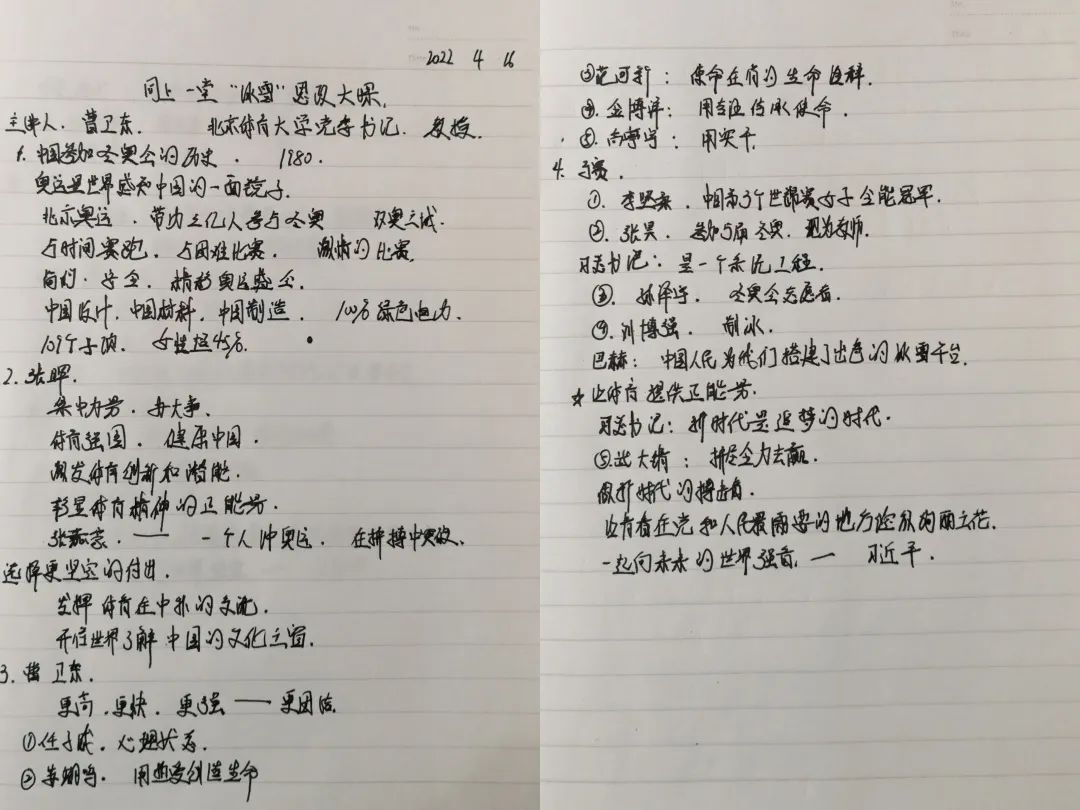 2022 4 16
同上一堂“冰雪”思政大课.
主讲人. 曹卫东. 北京体育大学党委书记. 教授.
1. 中国参加冬奥会的历史. 1980.
奥运是世界感知中国的一面镜子.
北京奥运. 带力三亿人参与冬奥 双奥之城.
与时间赛跑. 与困难比赛. 激情的比赛.
简约. 安全. 精彩奥运盛会.
中国设计. 中国材料. 中国制造. 100% 绿色电力.
109个子项. 女性捂45%.
2. 张晖.
集中力劳. 办大事.
体育强国. 健康中国.
激发体育创新和潜能.
彰显体育精神的正能劳.
张嘉豪. —— 一个人冲奥运. 在拼搏中突破.
选择更坚定的付出.
发挥体育在中外的交流.
开启世界了解中国的文化之窗.
3. 曹卫东.
更高. 更快. 更强 —— 更团结.
①任子威. 心理状态.
②苏翊鸣. 用热爱创造生命
③范可新: 使命在肩的生命诠释.
④. 金博洋: 用专注传承使命.
⑤. 高亭宇: 用实干.
4.
①. 李坚柔. 中国市3个世锦赛女子全能冠军.
②. 张昊. 参加5届冬奥. 现为教师.
习总书记: 是一个系统工程.
③. 泽宇. 冬奥会志愿者.
④. 刘博强. 制冰.
巴赫: 中国人民为他们搭建了出色的冰雪平台.
☆ 让体育提供正能劳.
习总书记: 新时代是追梦的时代.
⑤. : 拼尽全力去赢.
做新时代的搏击者.
让青春在党和人民最需要的地方绽放绚丽之花.
一起向未来的世界强音. — 习近平.